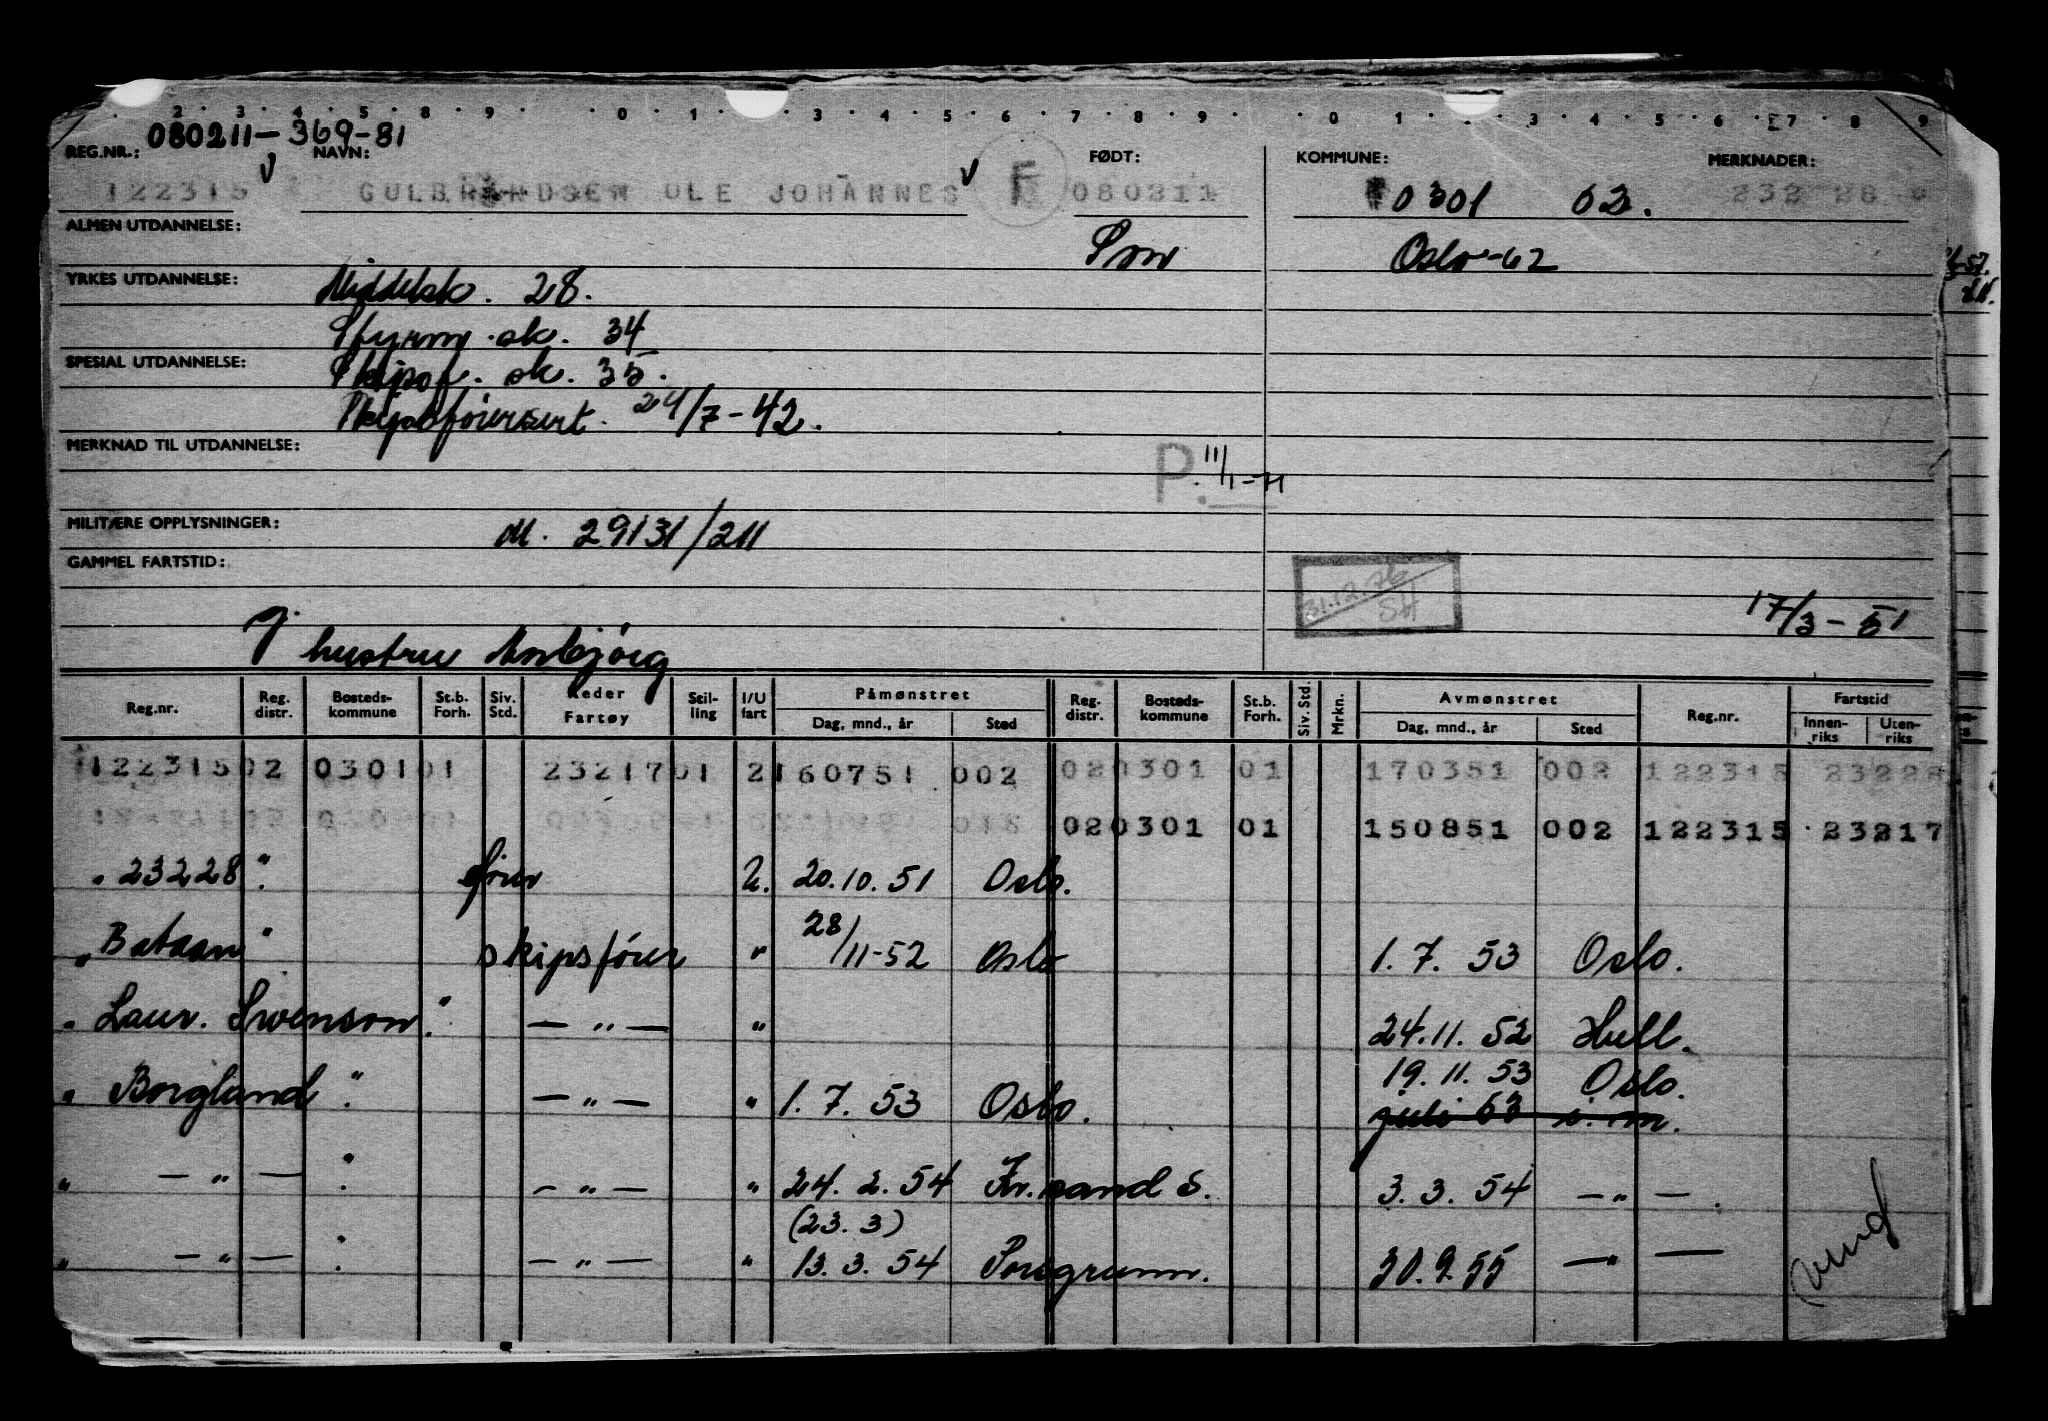 2 · 3 · 4 · 5 · 8 · 9 · · 0 · 1 · · 3 · 4 · 5 · 6 · 7 · 8 · 9 · · 0 · 1 · · 3 · 4 · 5 · 6 · 7 · 8 · 9
080211-369-81
REG.NR.: NAVN: FØDT: KOMMUNE: MERKNADER:
122315 GULBRANDSEN OLE JOHANNES F 080211 0301 02. 232 28
ALMEN UTDANNELSE: Son Oslo-62
YRKES UTDANNELSE: Middelsk. 28.
Styrm.sk. 34
SPESIAL UTDANNELSE: Skipsf. sk. 35.
Skipsførersert. 24/7-42.
MERKNAD TIL UTDANNELSE:
P. 11/1-71
MILITÆRE OPPLYSNINGER: M. 29131/211
GAMMEL FARTSTID:
31.12.76
SH
17/3-51
hustru Asbjörg
Reg.nr. Reg. distr. Bosteds-kommune St.b. Forh. Siv. Std. Reder Fartøy Stil-ling I/U fart Påmønstret Dag, mnd., år Sted Reg. distr. Bosteds-kommune St.b. Forh. Siv. Std. Mrkn. Avmønstret Dag, mnd., år Sted Reg.nr. Fartstid Innen-riks Uten-riks
122315 02 0301 01 23217 01 2 160751 002 02 0301 01 170351 002 122315 23228
02 0301 01 150851 002 122315 23217
" 23228 " fører U. 20.10.51 Oslo.
" Bataan " skipsfører " 28/11-52 Oslo 1.7.53 Oslo.
" Laur. Swenson " — " — " 24.11.52 Hull.
" Borgland " — " — " 1.7.53 Oslo. 19.11.53 Oslo.
juli 53 i. m.
" — " — " — " — " 24.2.54 Kr.sand S. 3.3.54 — " —.
(23.3)
" — " — " — " — " 13.3.54 Porsgrunn. 30.9.55 — " —